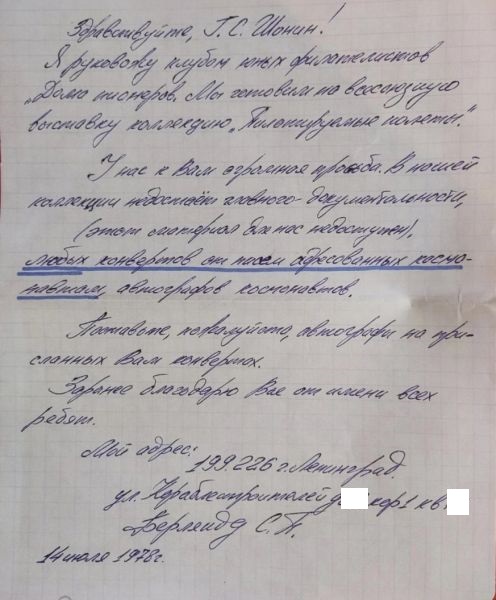 Здравствуйте, Г. С. Шонин!
Я руковожу клубом юных филателистов
„Дома пионеров. Мы готовим на всесоюзную
выставку коллекцию „Пилотируемые полеты".
У нас к Вам огромная просьба. В нашей
коллекции недостаёт главного - документальности,
(этот материал для нас недоступен),
любых конвертов от писем адресованных космо-
навтам, автографов космонавтов.
Поставьте, пожалуйста, автографы на при-
сланных Вам конвертах.
Заранее благодарю Вас от имени всех
ребят.
Мой адрес:
199226 г. Ленинград.
ул. Кораблестроителей д кор 1 кв
С. П.
14 июля 1978г.